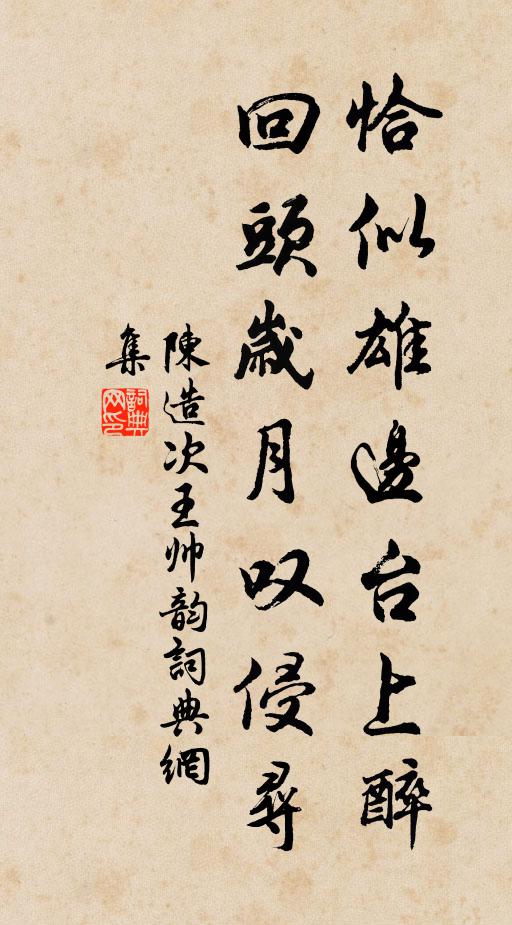 恰似雄邊台上醉
回頭歲月叹侵尋
陳造次王帅韵詞典網
集
詞典
网印